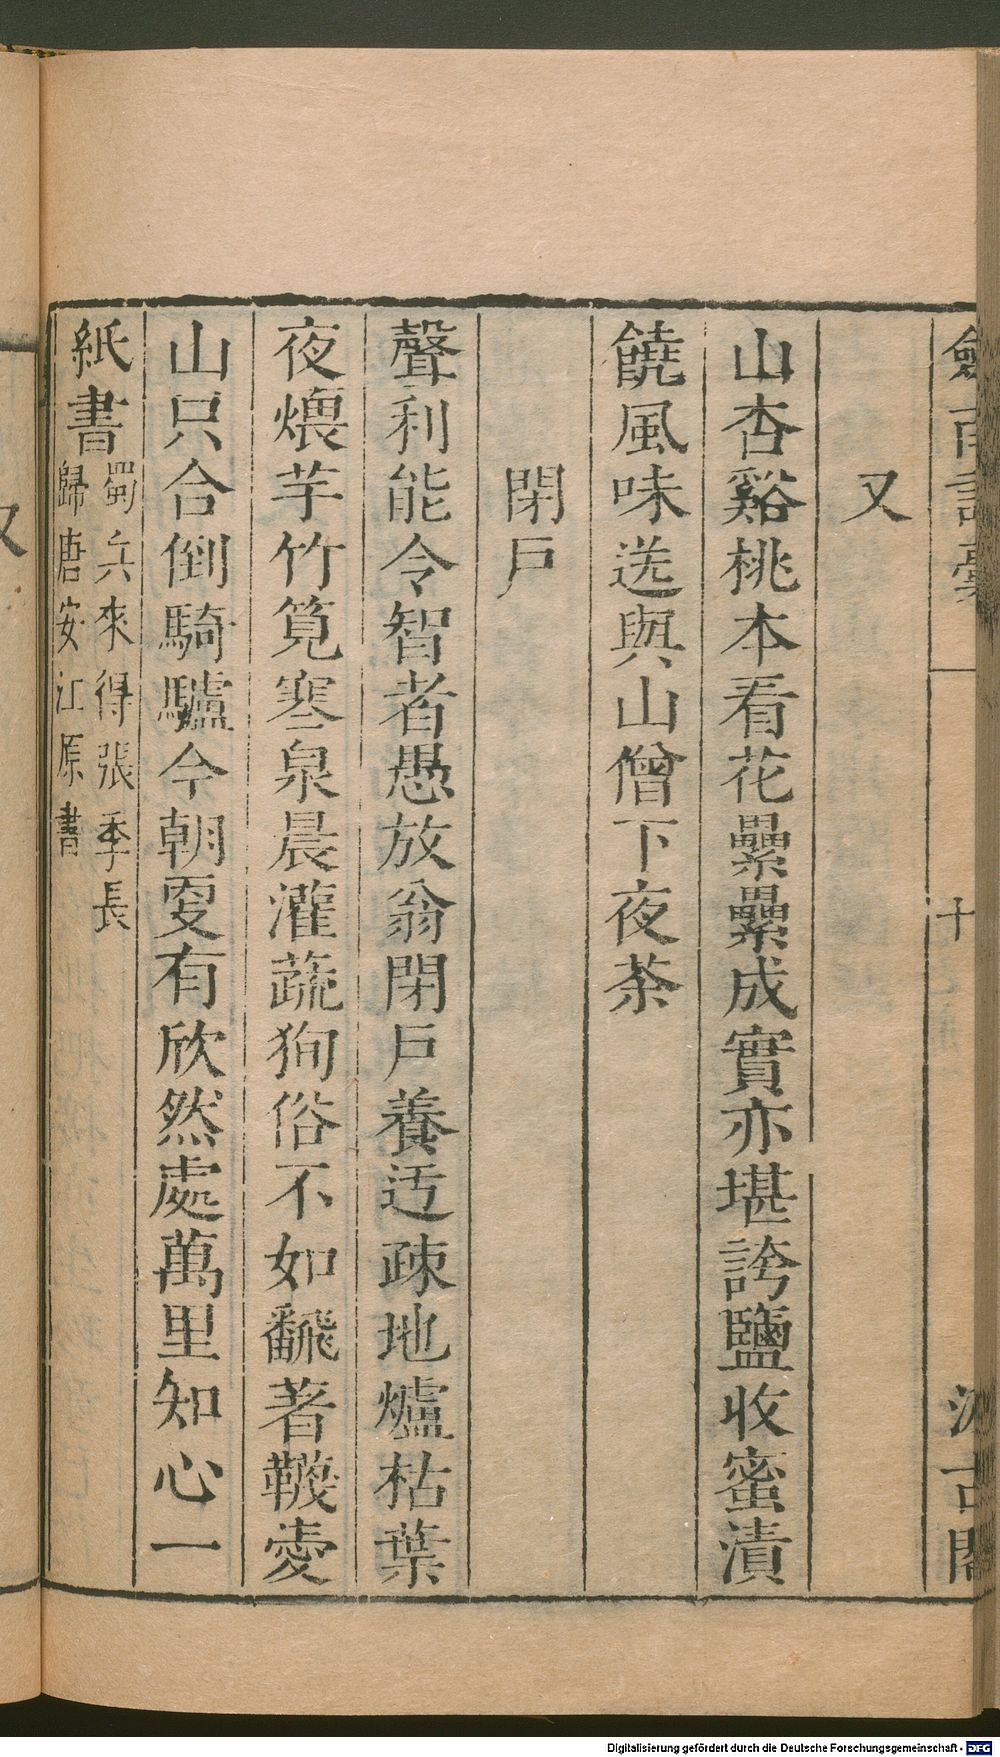 劍南詩稾
十
汲古閣
又
山杏谿桃本看花纍纍成實亦堪誇鹽收蜜漬
饒風味送與山僧下夜茶
閉戶
聲利能令智者愚放翁閉戶養迃疎地爐枯葉
夜煨芋竹筧寒泉晨灌蔬狥俗不如飜著韈愛
山只合倒騎驢今朝㪅有欣然處萬里知心一
紙書蜀兵來得張季長
歸唐安江原書
又
Digitalisierung gefördert durch die Deutsche Forschungsgemeinschaft - DFG